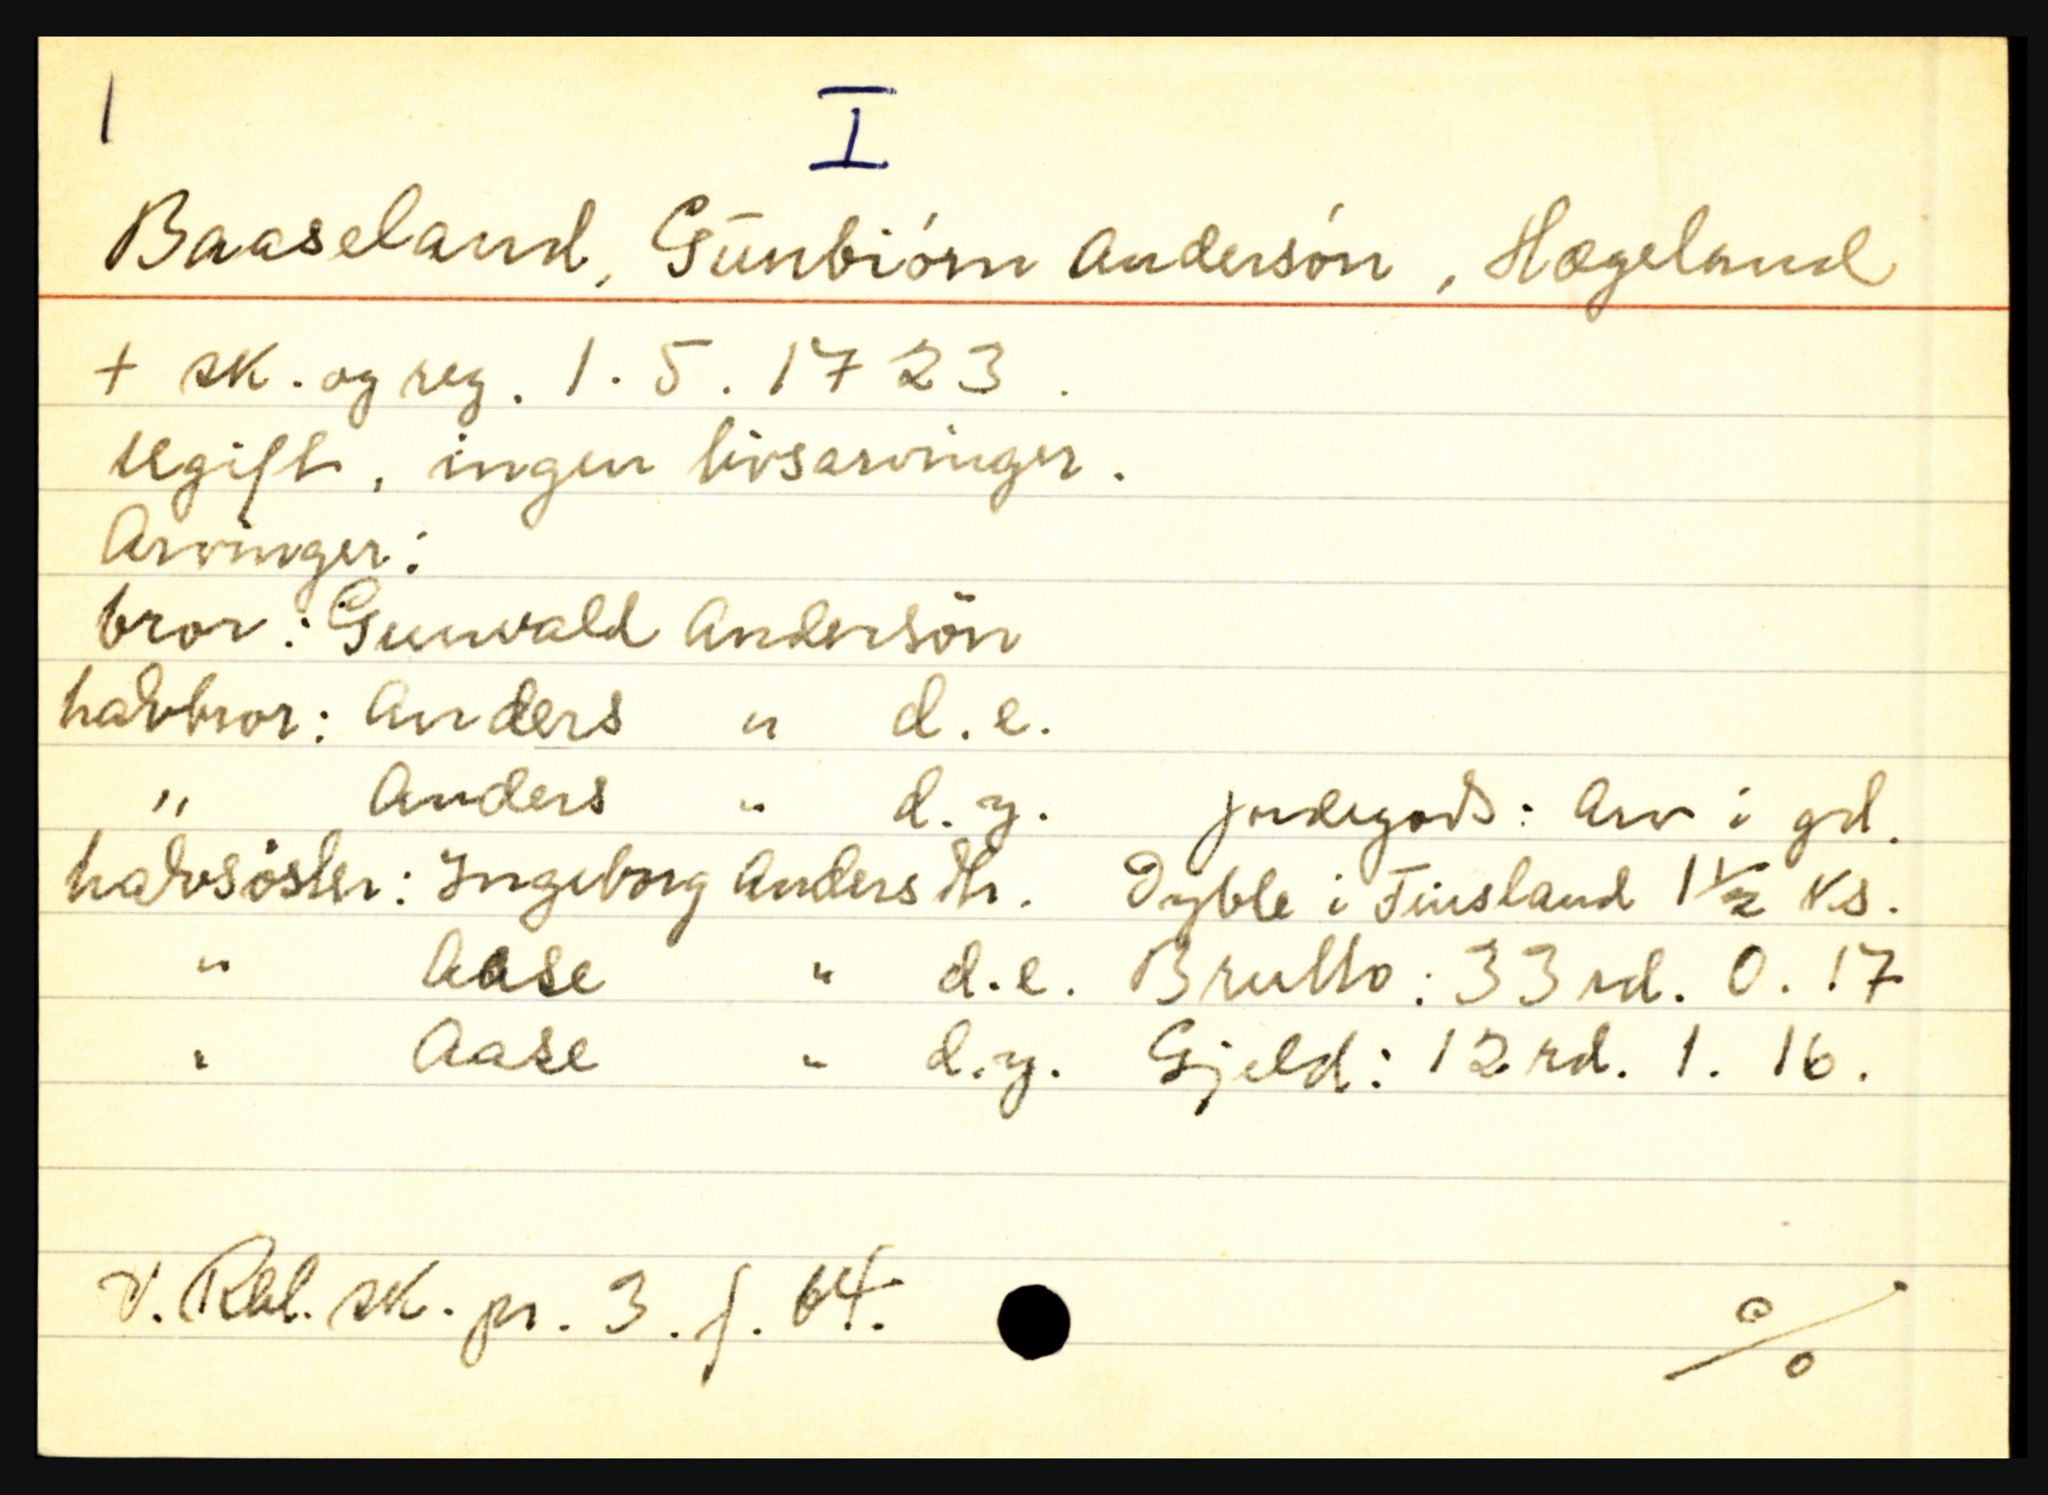 1
I
Baaseland, Gunbiórn Andersón, Hægeland
+ sk. og reg. 1.5.1723.
Ugift, ingen livsarvinger.
Arvinger:
bror: Gunvald Andersön
halvbror: Anders " d.e.
" Anders " d.y. jordegods: Arv i grd.
halvsöster: Ingeborg Andersdtr. Dyble i Finsland 1 1/2 ks.
" Aase " d.e. Brutto: 33 rd. 0. 17
" Aase " d.y. Gjeld: 12 rd. 1. 16.
V. Rbl. sk. pr. 3. f. 64.
%